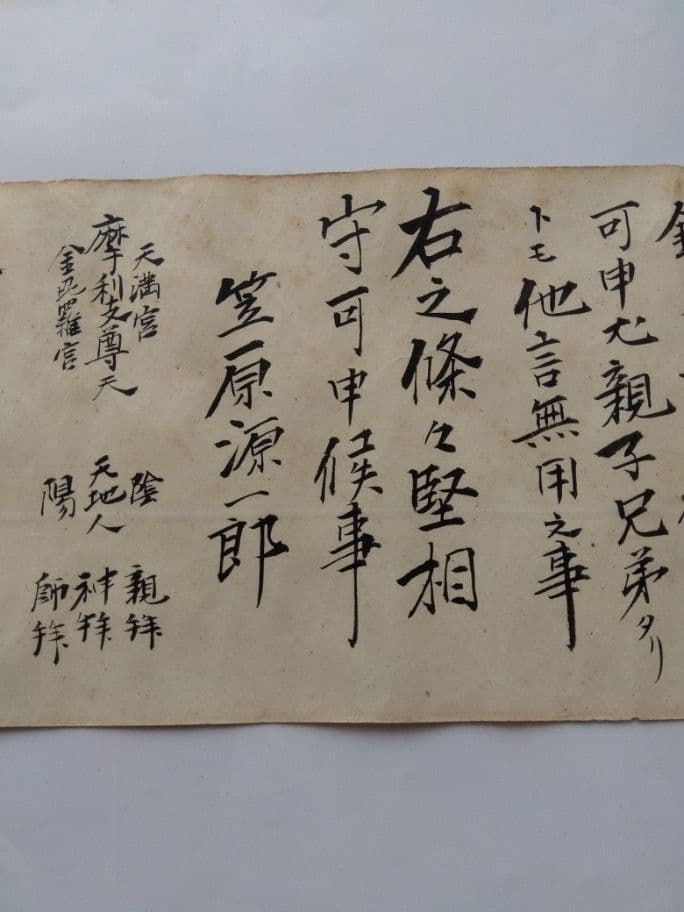 可申尤親子兄弟タリ
トモ他言無用之事
右之條々堅相
守可申候事
笠原源一郎
天満宮 陰 親拝
摩利支尊天 天地人 神拝
金毘羅宮 陽 師拝